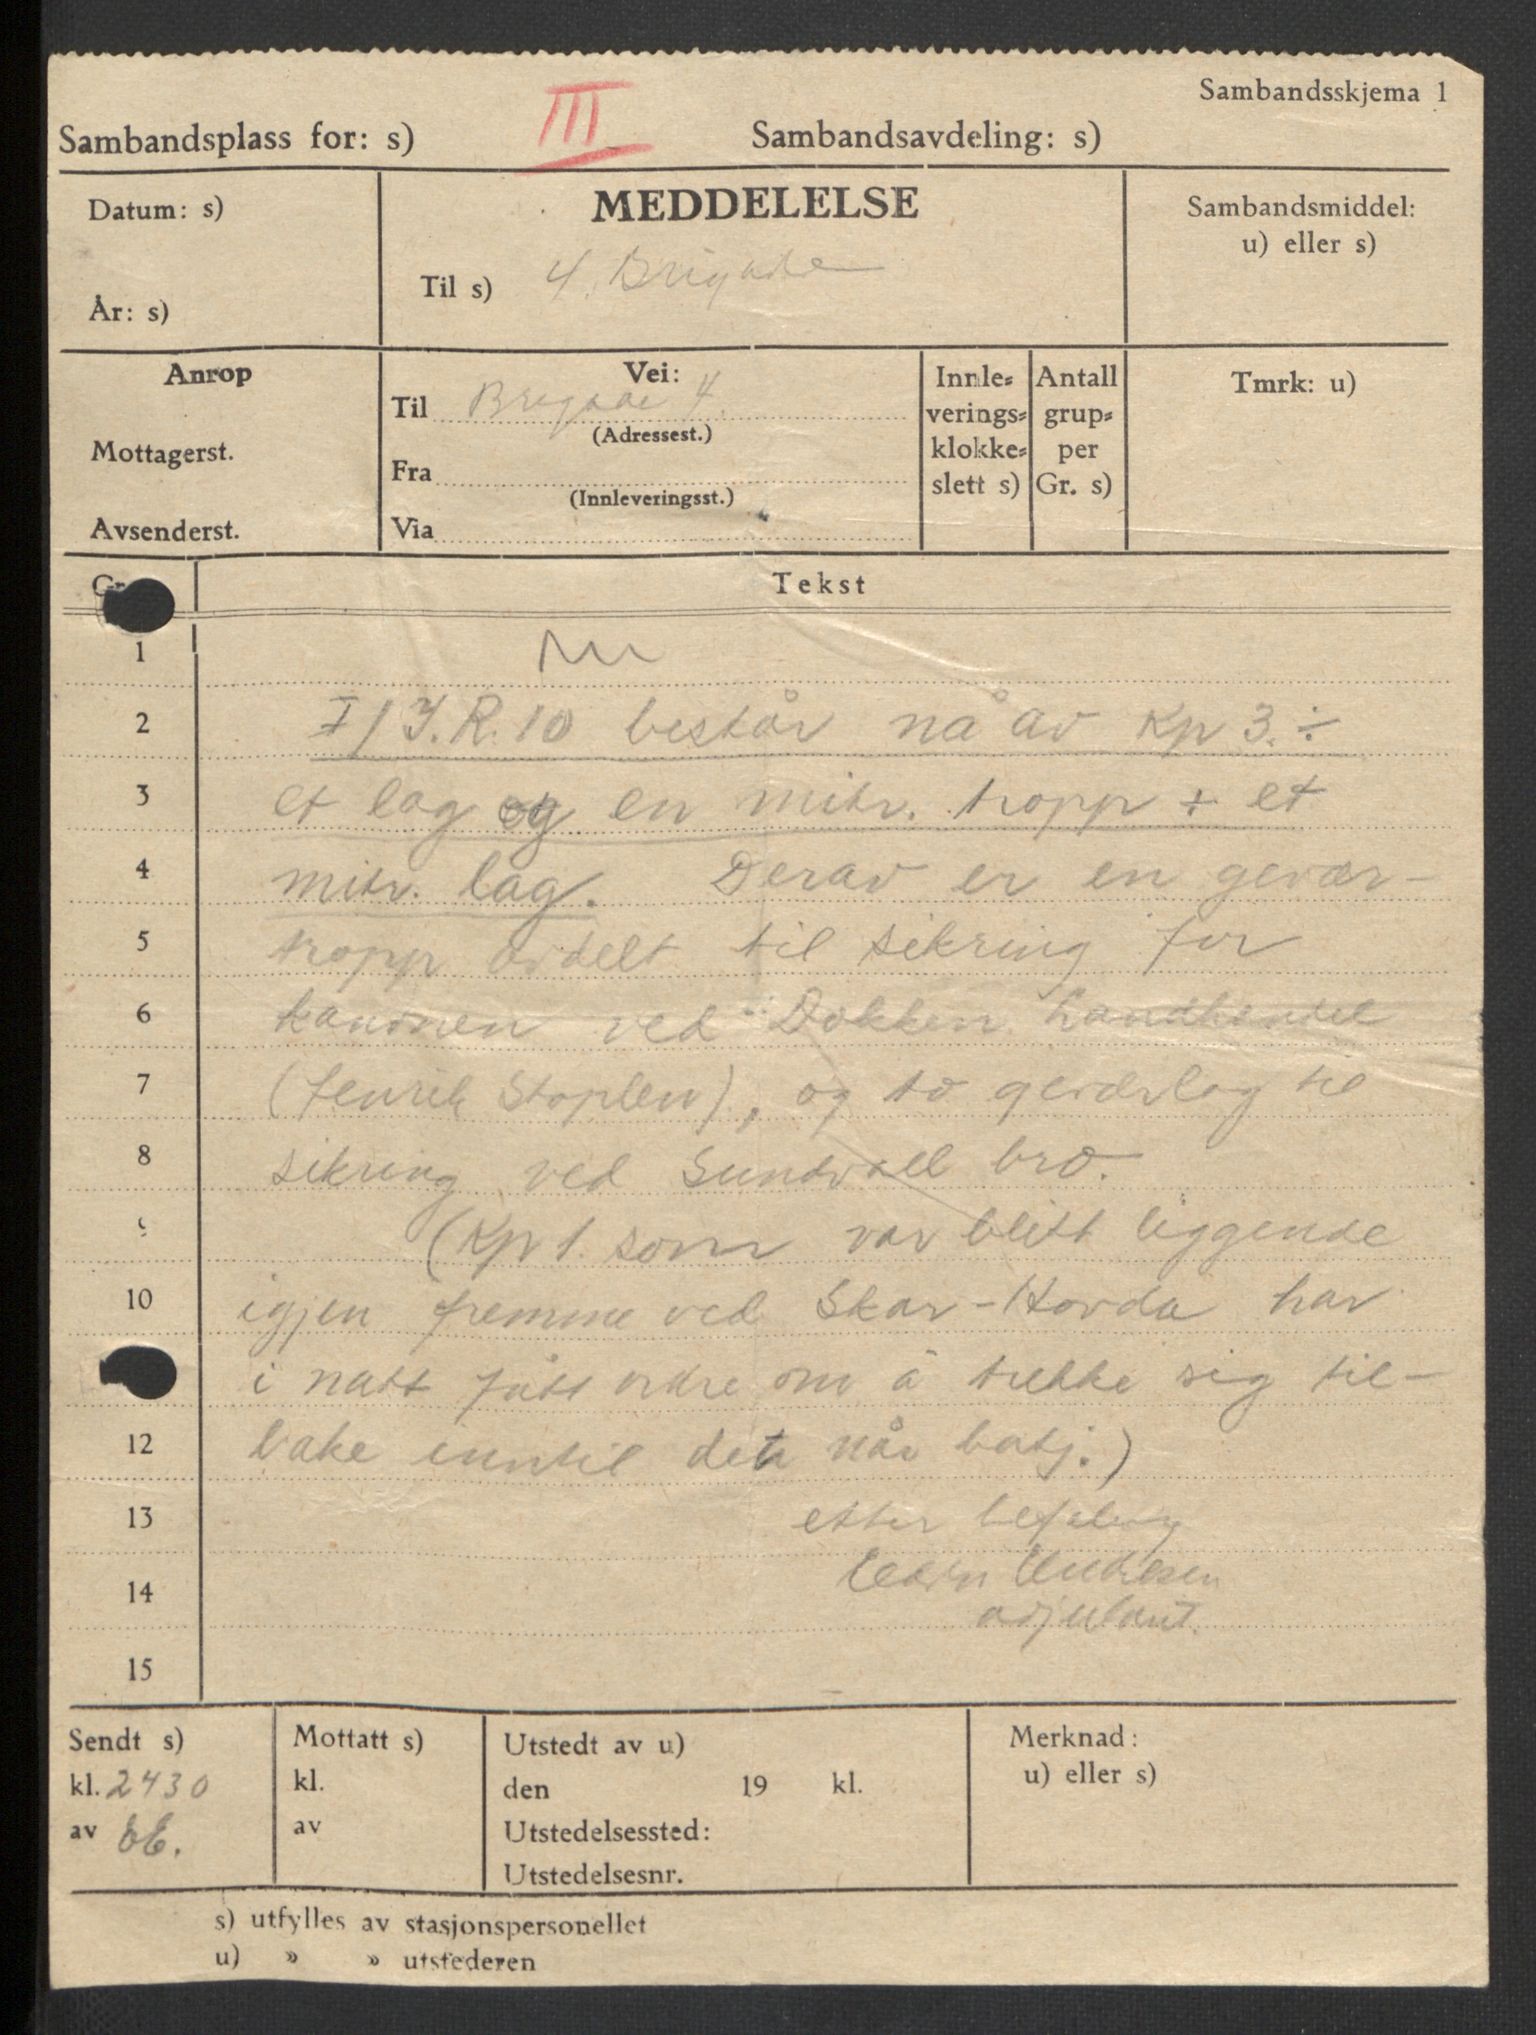 Sambandsskjema 1
III
Sambandsplass for: s) Sambandsavdeling: s)
Datum: s)
År: s)
MEDDELELSE
Til s) 4. Brigade
Sambandsmiddel:
u) eller s)
Anrop
Mottagerst.
Avsenderst.
Vei:
Til Brigade 4.
(Adressest.)
Fra
(Innleveringsst.)
Via
Innle=
verings=
klokke=
slett s)
Antall
grup=
per
Gr. s)
Tmrk: u)
Tekst
1
2 I/I.R. 10 består nå av Kp 3. ÷
3 et lag og en mitr. tropp + et
4 mitr. lag. Derav er en gevær-
5 tropp avdelt til sikring for
6 kanonen ved Dokken landhandel
7 (Henrik Stoplen), og to geværlag til
8 sikring ved Sundvoll bro.
9 (Kp 1. som var blitt liggende
10 igjen fremme ved Skar-Horda har
i natt fått ordre om å trekke sig til-
12 bake inntil det når batj.)
13 etter befaling
14
adjutant.
15
Sendt s)
kl. 2430
av
Mottatt s)
kl.
av
Utstedt av u)
den 19 kl.
Utstedelsessted:
Utstedelsesnr.
Merknad:
u) eller s)
s) utfylles av stasjonspersonellet
u) » » utstederen